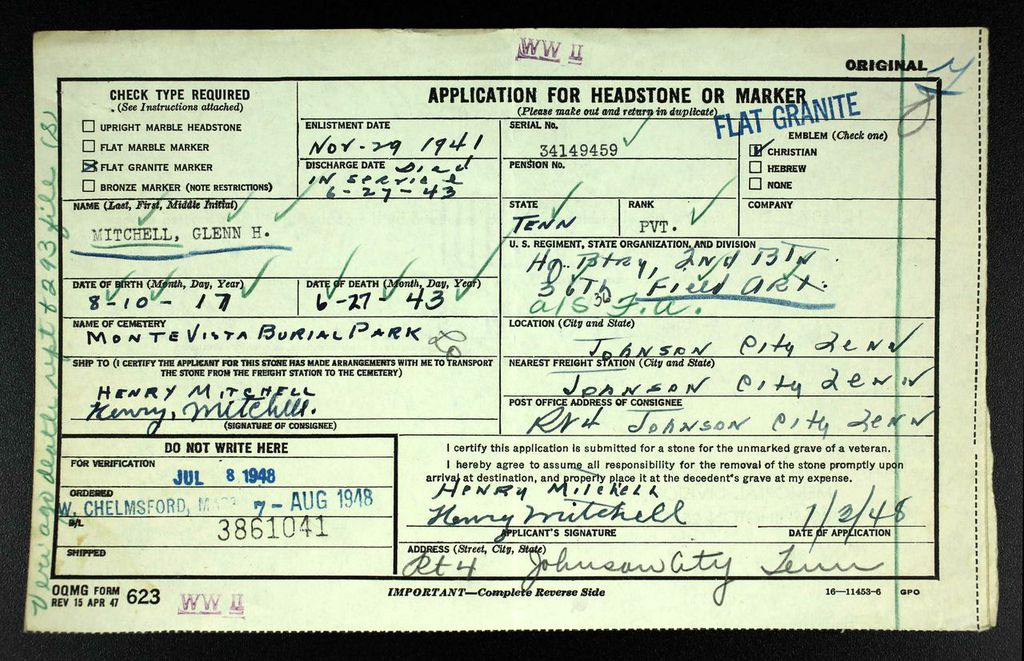 WW II
ORIGINAL
CHECK TYPE REQUIRED
(See Instructions attached)
UPRIGHT MARBLE HEADSTONE
FLAT MARBLE MARKER
FLAT GRANITE MARKER
BRONZE MARKER (NOTE RESTRICTIONS)
APPLICATION FOR HEADSTONE OR MARKER
(Please make out and return in duplicate)
FLAT GRANITE
ENLISTMENT DATE
Nov-29 1941
DISCHARGE DATE Died
IN Service
6-27-43
SERIAL No.
34149459
PENSION No.
EMBLEM (Check one)
CHRISTIAN
HEBREW
NONE
NAME (Last, First, Middle Initial)
MITCHELL, GLENN H.
STATE
TENN
RANK
PVT.
COMPANY
U. S. REGIMENT, STATE ORGANIZATION, AND DIVISION
Hq. Btry, 2nd BTN
36Th Field ARt.
DATE OF BIRTH (Month, Day, Year)
8-10-17
DATE OF DEATH (Month, Day, Year)
6-27-43
NAME OF CEMETERY
MONTE VISTA BURIAL PARK
LOCATION (City and State)
JOHNSON City TENN
SHIP TO (I CERTIFY THE APPLICANT FOR THIS STONE HAS MADE ARRANGEMENTS WITH ME TO TRANSPORT
THE STONE FROM THE FREIGHT STATION TO THE CEMETERY)
HENRY MITCHELL
Henry, Mitchell.
(SIGNATURE OF CONSIGNEE)
NEAREST FREIGHT STATION (City and State)
JOHNSON City TENN
POST OFFICE ADDRESS OF CONSIGNEE
Rt 4 JOHNSON City TENN
DO NOT WRITE HERE
FOR VERIFICATION
JUL 8 1948
ORDERED
W. CHELMSFORD, 7- AUG 1948
B/L
3861041
SHIPPED
I certify this application is submitted for a stone for the unmarked grave of a veteran.
I hereby agree to assume all responsibility for the removal of the stone promptly upon
arrival at destination, and properly place it at the decedent's grave at my expense.
HENRY Mitchell
Henry Mitchell 1/2/48
APPLICANT'S SIGNATURE DATE OF APPLICATION
ADDRESS (Street, City, State)
Rt 4 Johnson City Tenn
OQMG FORM 623
REV 15 APR 47
WW II
IMPORTANT—Complete Reverse Side
16—11453-6 GPO